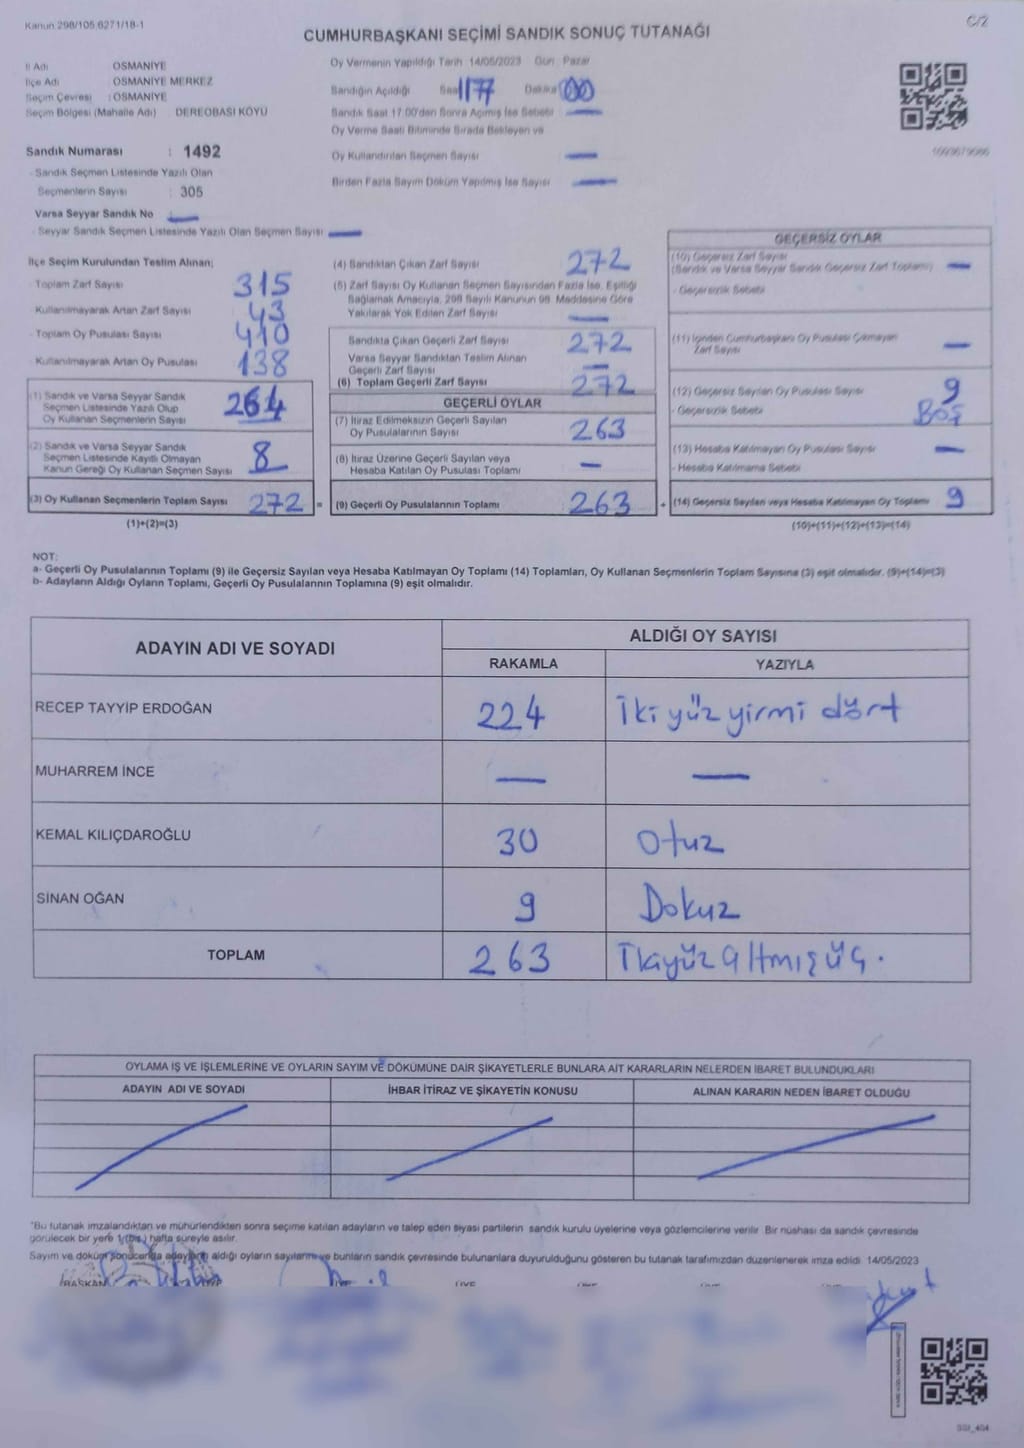 Kanun 298/105 6271/18-1
C/2
CUMHURBAŞKANI SEÇİMİ SANDIK SONUÇ TUTANAĞI
İl Adı OSMANİYE
İlçe Adı OSMANİYE MERKEZ
Seçim Çevresi : OSMANİYE
Seçim Bölgesi (Mahalle Adı) : DEREOBASI KÖYÜ
Sandık Numarası : 1492
- Sandık Seçmen Listesinde Yazılı Olan
Seçmenlerin Sayısı : 305
Varsa Seyyar Sandık No —
- Seyyar Sandık Seçmen Listesinde Yazılı Olan Seçmen Sayısı —
Oy Vermenin Yapıldığı Tarih 14/05/2023 Gün : Pazar
Sandığın Açıldığı Saat 17 Dakika 00
Sandık Saat 17:00'den Sonra Açılmış İse Sebebi : —
Oy Verme Saati Bitiminde Sırada Bekleyen ve
Oy Kullandırılan Seçmen Sayısı —
Birden Fazla Sayım Döküm Yapılmış İse Sayısı —
İlçe Seçim Kurulundan Teslim Alınan;
- Toplam Zarf Sayısı 315
- Kullanılmayarak Artan Zarf Sayısı 43
- Toplam Oy Pusulası Sayısı 410
- Kullanılmayarak Artan Oy Pusulası 138
(1) Sandık ve Varsa Seyyar Sandık
Seçmen Listesinde Yazılı Olup
Oy Kullanan Seçmenlerin Sayısı 264
(2) Sandık ve Varsa Seyyar Sandık
Seçmen Listesinde Kayıtlı Olmayan
Kanun Gereği Oy Kullanan Seçmen Sayısı 8
(3) Oy Kullanan Seçmenlerin Toplam Sayısı 272 =
(1)+(2)=(3)
(4) Sandıktan Çıkan Zarf Sayısı 272
(5) Zarf Sayısı Oy Kullanan Seçmen Sayısından Fazla İse, Eşitliği
Sağlamak Amacıyla, 298 Sayılı Kanunun 98. Maddesine Göre
Yakılarak Yok Edilen Zarf Sayısı —
Sandıkta Çıkan Geçerli Zarf Sayısı 272
Varsa Seyyar Sandıktan Teslim Alınan
Geçerli Zarf Sayısı —
(6) Toplam Geçerli Zarf Sayısı 272
GEÇERLİ OYLAR
(7) İtiraz Edilmeksizin Geçerli Sayılan
Oy Pusulalarının Sayısı 263
(8) İtiraz Üzerine Geçerli Sayılan veya
Hesaba Katılan Oy Pusulası Toplamı —
(9) Geçerli Oy Pusulalarının Toplamı 263 +
GEÇERSİZ OYLAR
(10) Geçersiz Zarf Sayısı
(Sandık ve Varsa Seyyar Sandık Geçersiz Zarf Toplamı) —
- Geçersizlik Sebebi
(11) İçinden Cumhurbaşkanı Oy Pusulası Çıkmayan
Zarf Sayısı —
(12) Geçersiz Sayılan Oy Pusulası Sayısı 9
- Geçersizlik Sebebi BOŞ
(13) Hesaba Katılmayan Oy Pusulası Sayısı —
- Hesaba Katılmama Sebebi
(14) Geçersiz Sayılan veya Hesaba Katılmayan Oy Toplamı 9
(10)+(11)+(12)+(13)=(14)
NOT:
a- Geçerli Oy Pusulalarının Toplamı (9) ile Geçersiz Sayılan veya Hesaba Katılmayan Oy Toplamı (14) Toplamları, Oy Kullanan Seçmenlerin Toplam Sayısına (3) eşit olmalıdır. (9)+(14)=(3)
b- Adayların Aldığı Oyların Toplamı, Geçerli Oy Pusulalarının Toplamına (9) eşit olmalıdır.
ADAYIN ADI VE SOYADI ALDIĞI OY SAYISI
RAKAMLA YAZIYLA
RECEP TAYYİP ERDOĞAN 224 İki yüz yirmi dört
MUHARREM İNCE — —
KEMAL KILIÇDAROĞLU 30 Otuz
SİNAN OĞAN 9 Dokuz
TOPLAM 263 İkiyüz altmışüç.
OYLAMA İŞ VE İŞLEMLERİNE VE OYLARIN SAYIM VE DÖKÜMÜNE DAİR ŞİKAYETLERLE BUNLARA AİT KARARLARIN NELERDEN İBARET BULUNDUKLARI
ADAYIN ADI VE SOYADI İHBAR İTİRAZ VE ŞİKAYETİN KONUSU ALINAN KARARIN NEDEN İBARET OLDUĞU
*Bu tutanak imzalandıktan ve mühürlendikten sonra seçime katılan adayların ve talep eden siyasi partilerin sandık kurulu üyelerine veya gözlemcilerine verilir. Bir nüshası da sandık çevresinde
görülecek bir yere 1 (bir) hafta süreyle asılır.
Sayım ve döküm sonucunda adayların aldığı oyların sayılarını ve bunların sandık çevresinde bulunanlara duyurulduğunu gösteren bu tutanak tarafımızdan düzenlenerek imza edildi. 14/05/2023
BAŞKAN ÜYE ÜYE